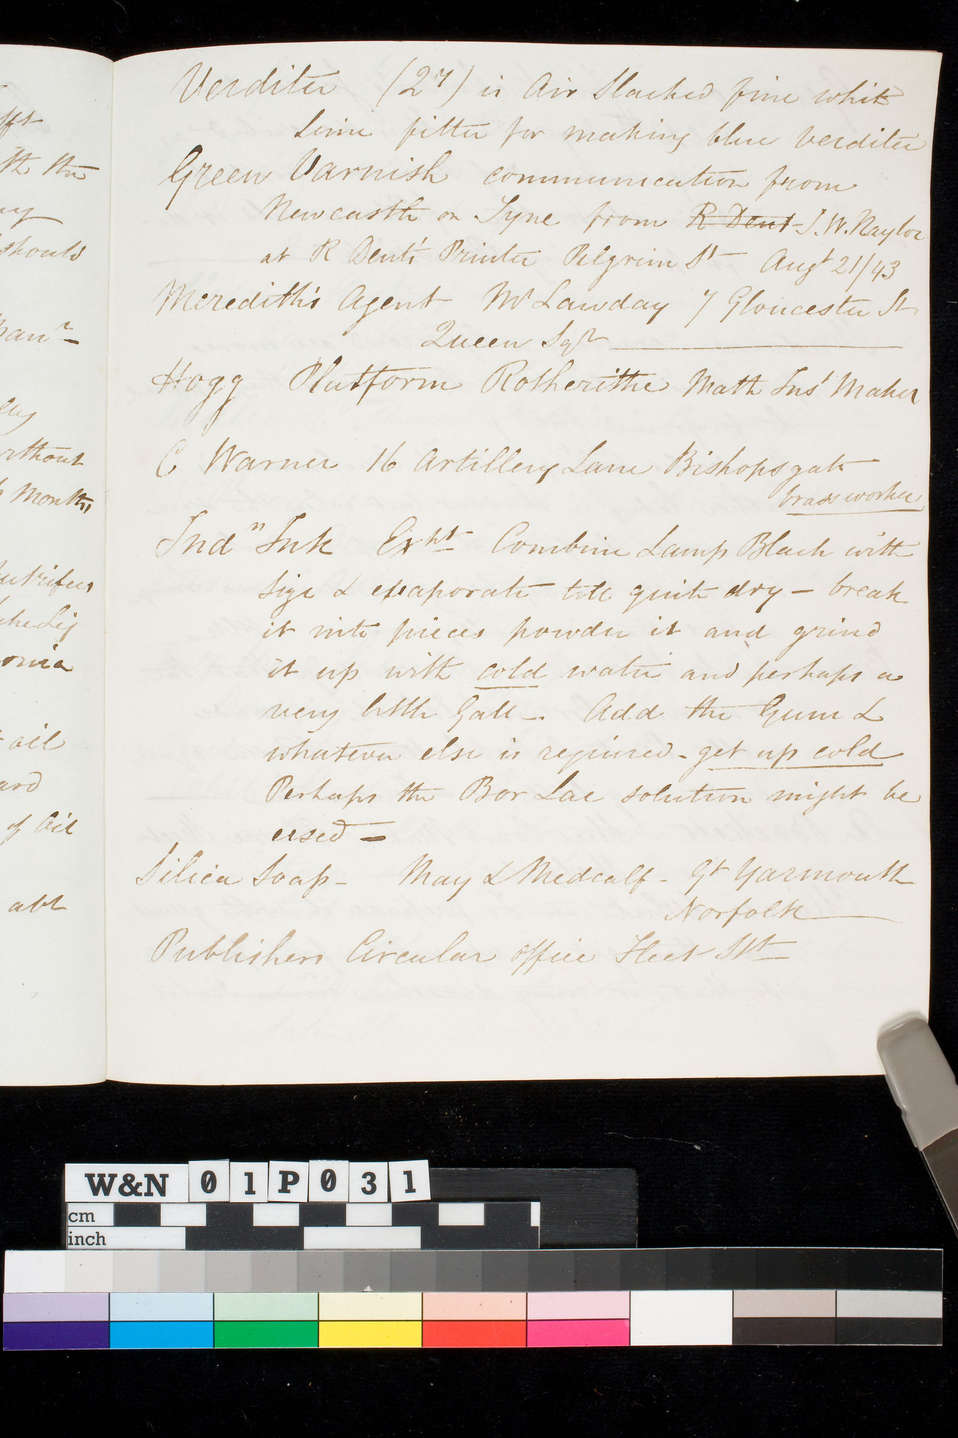 Verditer (2ʸ) is Air Slacked fine white
Lime fitter for making blue verditer
Green Varnish communication from
Newcastle on Tyne from R Dent J. W. Naylor
at R Dent's Printer Pilgrim St Augt 21/43
Meredith's Agent Mr Lawday 7 Gloucester St
Queen Sqr
Hogg Platform Rotherithe Math Inst Maker
C Warner 16 Artillery Lane Bishopsgate
brass worker
Indn Ink Expt Combine Lamp Black with
Size & evaporate till quite dry – break
it into pieces powder it and grind
it up with cold water and perhaps a
very little Gall –. Add the Gum &
whatever else is required – get up cold
Perhaps the Bor Lac solution might be
used –
Silica Soap – May & Medcalf – Gt Yarmouth
Norfolk
Publishers Circular office Fleet Stt
fft
th the
should
without
months
onia
oil
ard
of Oil
abt
W&N 01P031
cm
inch